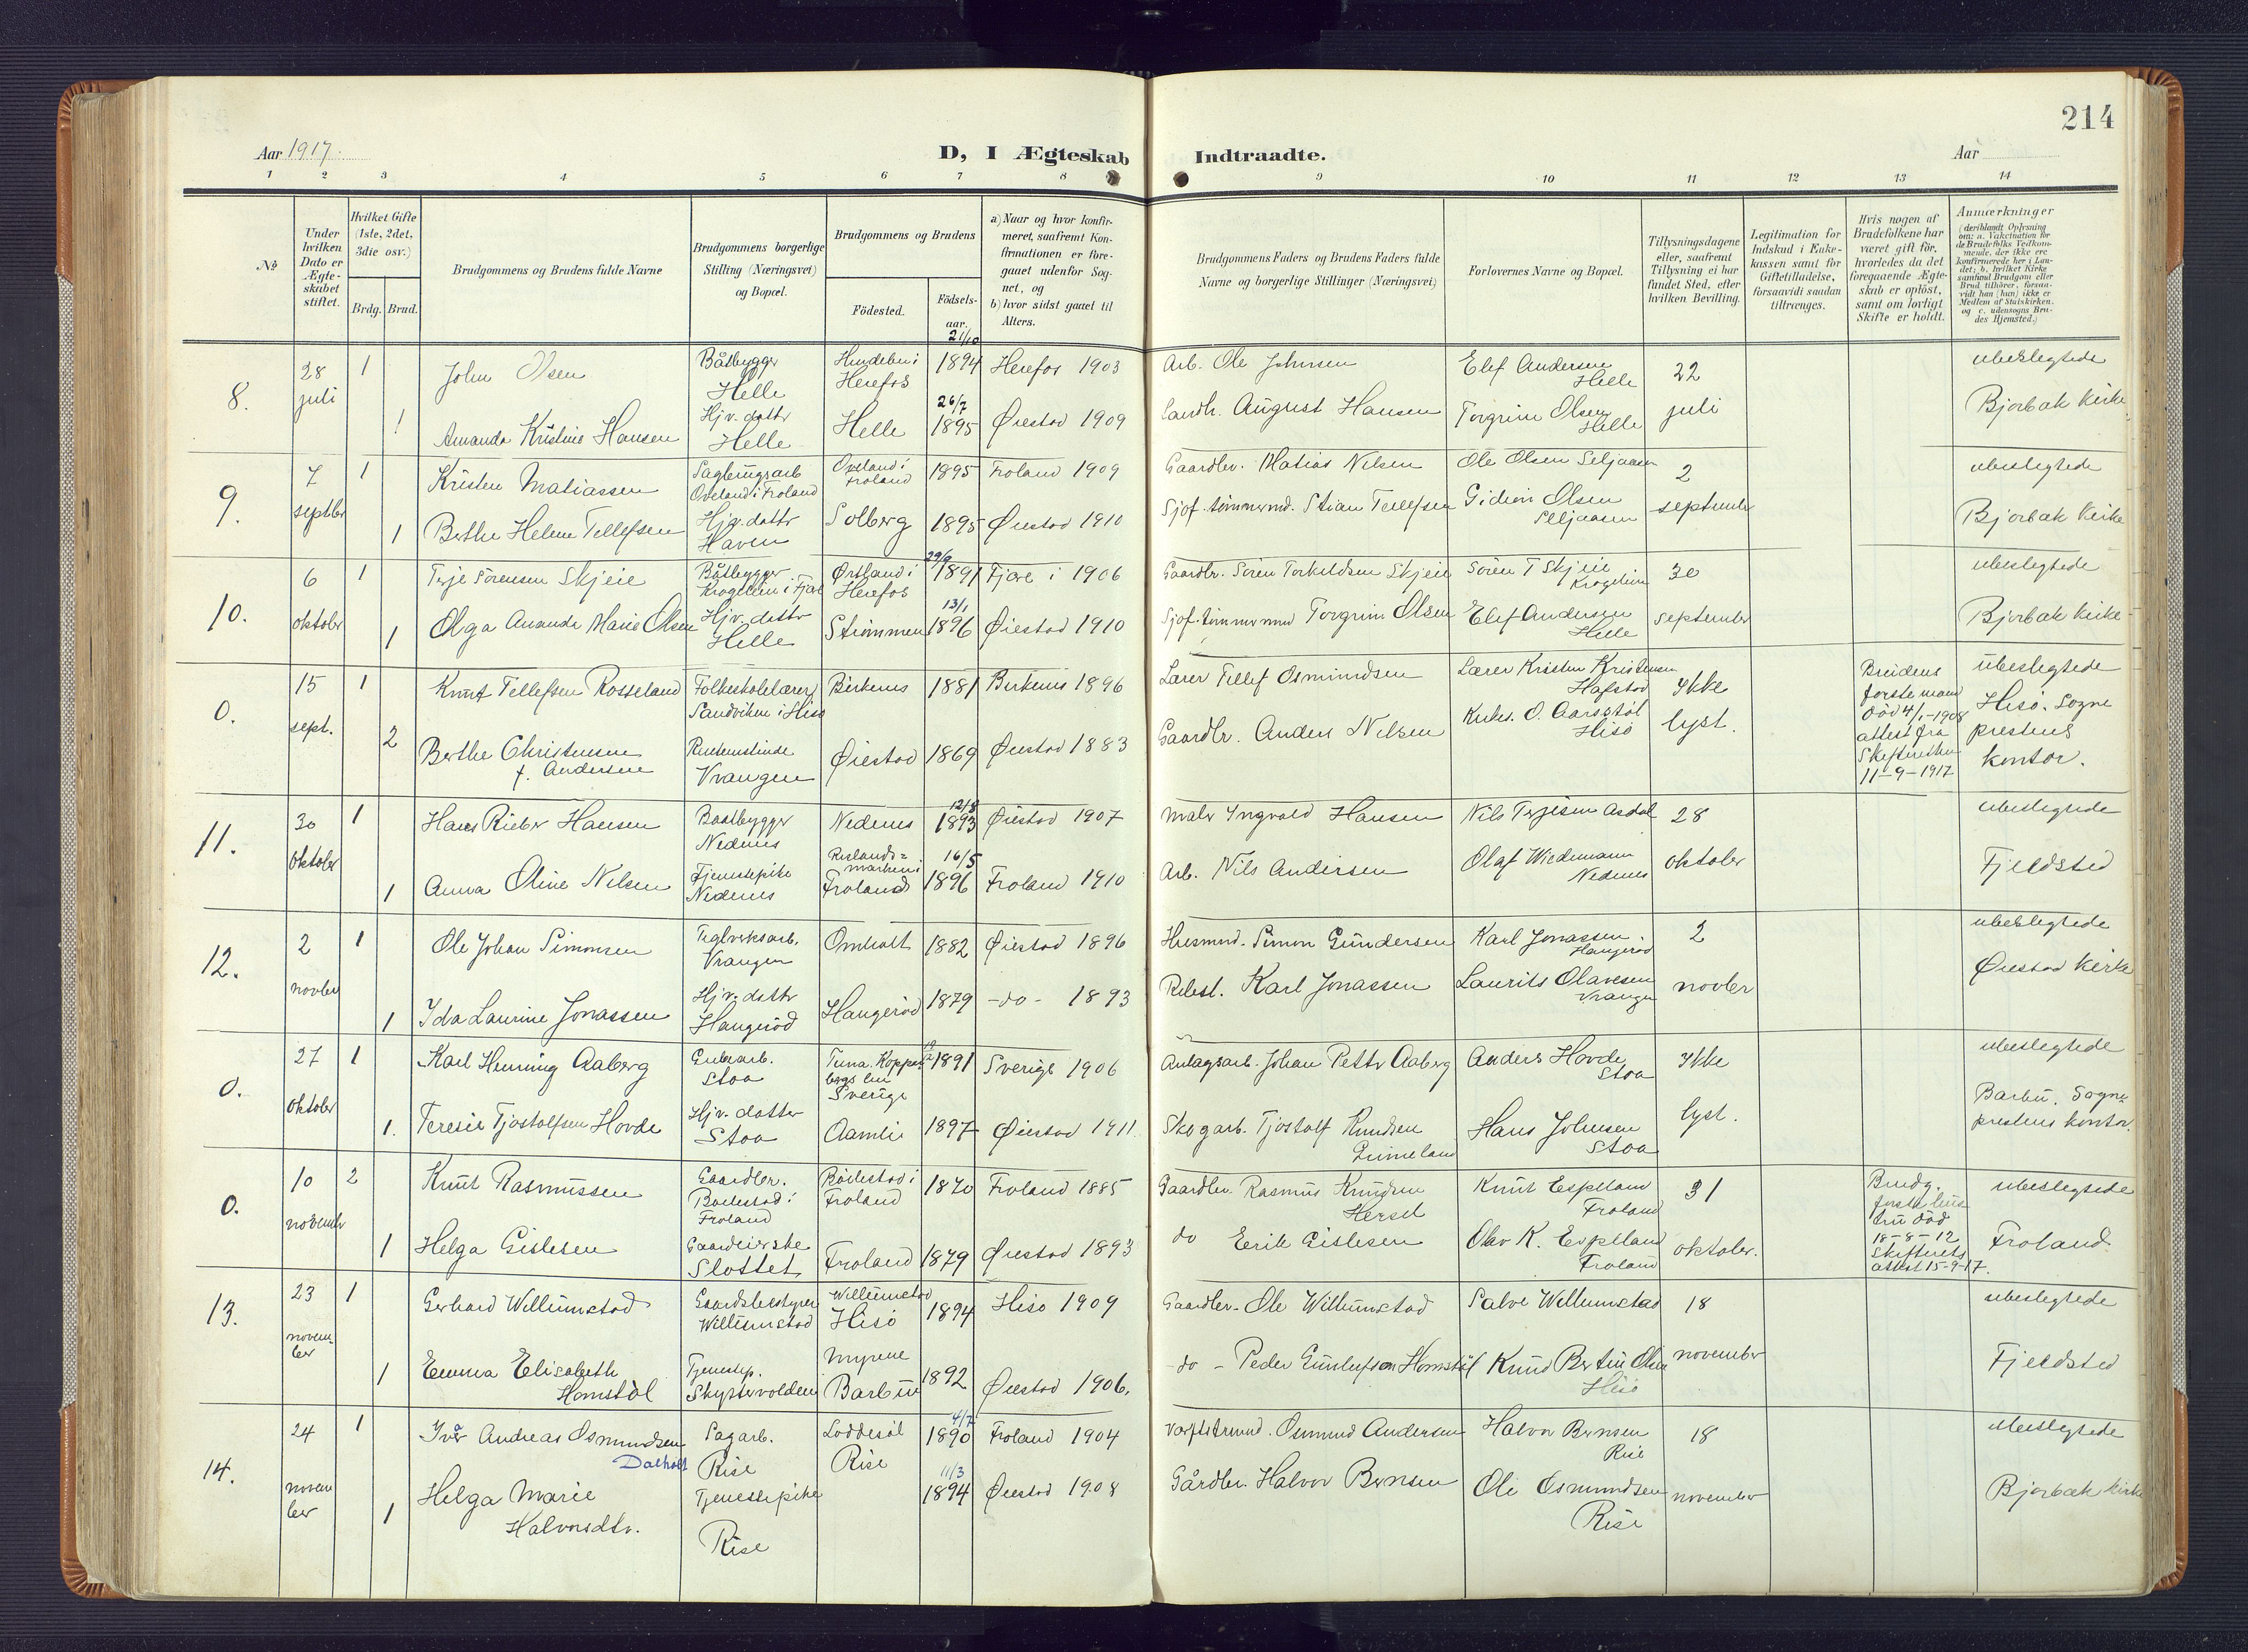 214
Aar 1917.
D, I Ægteskab Indtraadte.
Aar
1 2 3 4 5 6 7 8 9 10 11 12 13 14
No
Under hvilken Dato er Ægteskabet stiftet.
Hvilket Gifte (1ste, 2det, 3die osv.)
Brdg. Brud.
Brudgommens og Brudens fulde Navne
Brudgommens borgerlige Stilling (Næringsvei) og Bopæl.
Brudgommens og Brudens
Fødested.
Fødselsaar.
a) Naar og hvor konfirmeret, saafremt Konfirmationen er foregaaet udenfor Sognet, og
b) hvor sidst gaaet til Alters.
Brudgommens Faders og Brudens Faders fulde Navne og borgerlige Stillinger (Næringsvei)
Forlovernes Navne og Bopæl.
Tillysningsdagene eller, saafremt Tillysning ei har fundet Sted, efter hvilken Bevilling.
Legitimation for Indskud i Enkekassen samt for Giftetilladelse, forsaavidt saadan tiltrænges.
Hvis nogen af Brudefolkene har været gift før, hvorledes da det foregaaende Ægteskab er opløst, samt om lovligt Skifte er holdt.
Anmærkninger (deriblandt Oplysning om: a. Vakcination for de Brudefolks Vedkommende, der ikke ere konfirmerede her i Landet; b. hvilket Kirkesamfund Brudgom eller Brud tilhører, forsaavidt han (hun) ikke er Medlem af Statskirken. og c. udensogns Brudes Hjemsted.)
8. 28 juli 1 John Olsen Båtbygger Helle Herefos 21/10 1894 Herefos 1903 Arb. Ole Johnsen Elef Andersen Helle 22 juli ubeslegtede
1 Amanda Kristine Hansen Hjv. dattr Helle Helle 26/7 1895 Øiestad 1909 August Hansen Torgrim Olsen Helle Bjorbæk Kirke
9. 7 septbr 1 Kristen Matiassen Oveland i Froland Oveland i Froland 1895 Froland 1909 Gaardbr. Matias Nilsen Ole Olsen Seljaasen 2 september ubeslegtede
1 Berthe Helene Tellefsen Hjv. dattr Haven Solberg 1895 Øiestad 1910 Sjøf. tømmermd. Stian Tellefsen Gideon Olsen Seljaasen Bjorbæk Kirke
10. 6 oktober 1 Terje Sørensen Skjeie Båtbygger i Fjære Herefos 29/9 1891 Fjære i 1906 Gaardbr. Søren Torkeldsen Skjeie Søren T Skjeie 30 september ubeslegtede
1 Olga Amanda Marie Olsen Hjv. dattr Helle Strømmen 13/1 1896 Øiestad 1910 Sjøf. tømmermd Torgrim Olsen Elef Andersen Helle Bjorbæk Kirke
0. 15 sept. 1 Knut Tellefsen Rosseland Folkeskolelærer Sandviken i Hisø Birkenes 1881 Birkenes 1896 Lærer Tellef Osmundsen Lærer Kristen Kristensen Hafstad Ikke lyst. Brudens første mand död 4/1-1908 attest fra Skifteretten 11-9-1917 ubeslegtede
2 Berthe Christensen f. Andersen Vrangen Øiestad 1869 Øiestad 1883 Gaardbr. Anders Nilsen Kirkes. O. Aarsstøl Hisø Hisø. Sogneprestens kontor.
11. 30 oktober 1 Hans Rieber Hansen Baatbygger Nedenes Nedenes 12/8 1893 Øiestad 1907 Maler Ingvald Hansen Nils Terjesen Asdal 28 oktober ubeslegtede
1 Anna Oline Nilsen Tjenestepike Nedenes Rislandsmarken i Froland 16/5 1896 Froland 1910 Arb. Nils Andersen Olaf Wiedemann Nedenes Fjeldsted
12. 2 novber 1 Ole Johan Simonsen Teglverksarb. Vrangen Omholt 1882 Øiestad 1896 Husmnd. Simon Gundersen Karl Jonassen Haugerød 2 novber ubeslegtede
1 Ida Laurine Jonassen Hjv. dattr Haugerød Haugerød 1879 -do- 1893 Karl Jonassen Laurits Olavesen Vrangen Øiestad Kirke
0. 27 oktober 1 Karl Henning Aaberg Grubearb. Stoa Tuna Kopperbergs len Sverige 1891 Sverige 1906 Anlægsarb. Johan Petter Aaberg Anders Hovde Stoa Ikke lyst. ubeslegtede
1. Teresie Tjostolfsen Hovde Hjv. datter Stoa Aamli 1897 Øiestad 1911. Skogarb. Tjostolf Knudsen Grimeland Hans Johnsen Stoa Barbu. Sogneprestens kontor.
0. 10 november 2 Knut Rasmussen Gaardbr. Bøilestad i Froland Bøilestad i Froland 1870 Froland 1885 Gaardbr. Rasmus Knudsen Hersel Knut Espeland Froland 31 oktober. Brudg. første hustru död 18-8-12 Skifterets attest 15-9-17. ubeslegtede
1 Helga Gislesen Gaardeierske Slottet Froland 1879 Øiestad 1893 do Erik Gislesen Olav K. Espeland Froland Froland
13. 23 november 1 Gerhard Willumstad Gaardsbestyrer Willumstad Willumstad Hisø 1894 Hisø 1909 Gaardbr. Ole Willumstad Salve Willumstad 18 november ubeslegtede
1 Emma Elisabeth Homstøl Tjenestep. Myrene Barbu 1892 Øiestad 1906. -do- Peder Gunlufsen Homstøl Knud Bertin Olsen Hisø Fjeldsted
14. 24 november 1 Ivar Andreas Osmundsen Dalholt Sagarb. Rise Løddesøl Rise 4/7 1890 Froland 1904 Osmund Andersen Halvor Bernsen Rise 18 november ubeslegtede
1 Helga Marie Halvorsdtr. Tjenestepike Rise 11/3 1894 Øiestad 1908 Gårdbr. Halvor Bernsen Ole Osmundsen Rise Bjorbæk Kirke